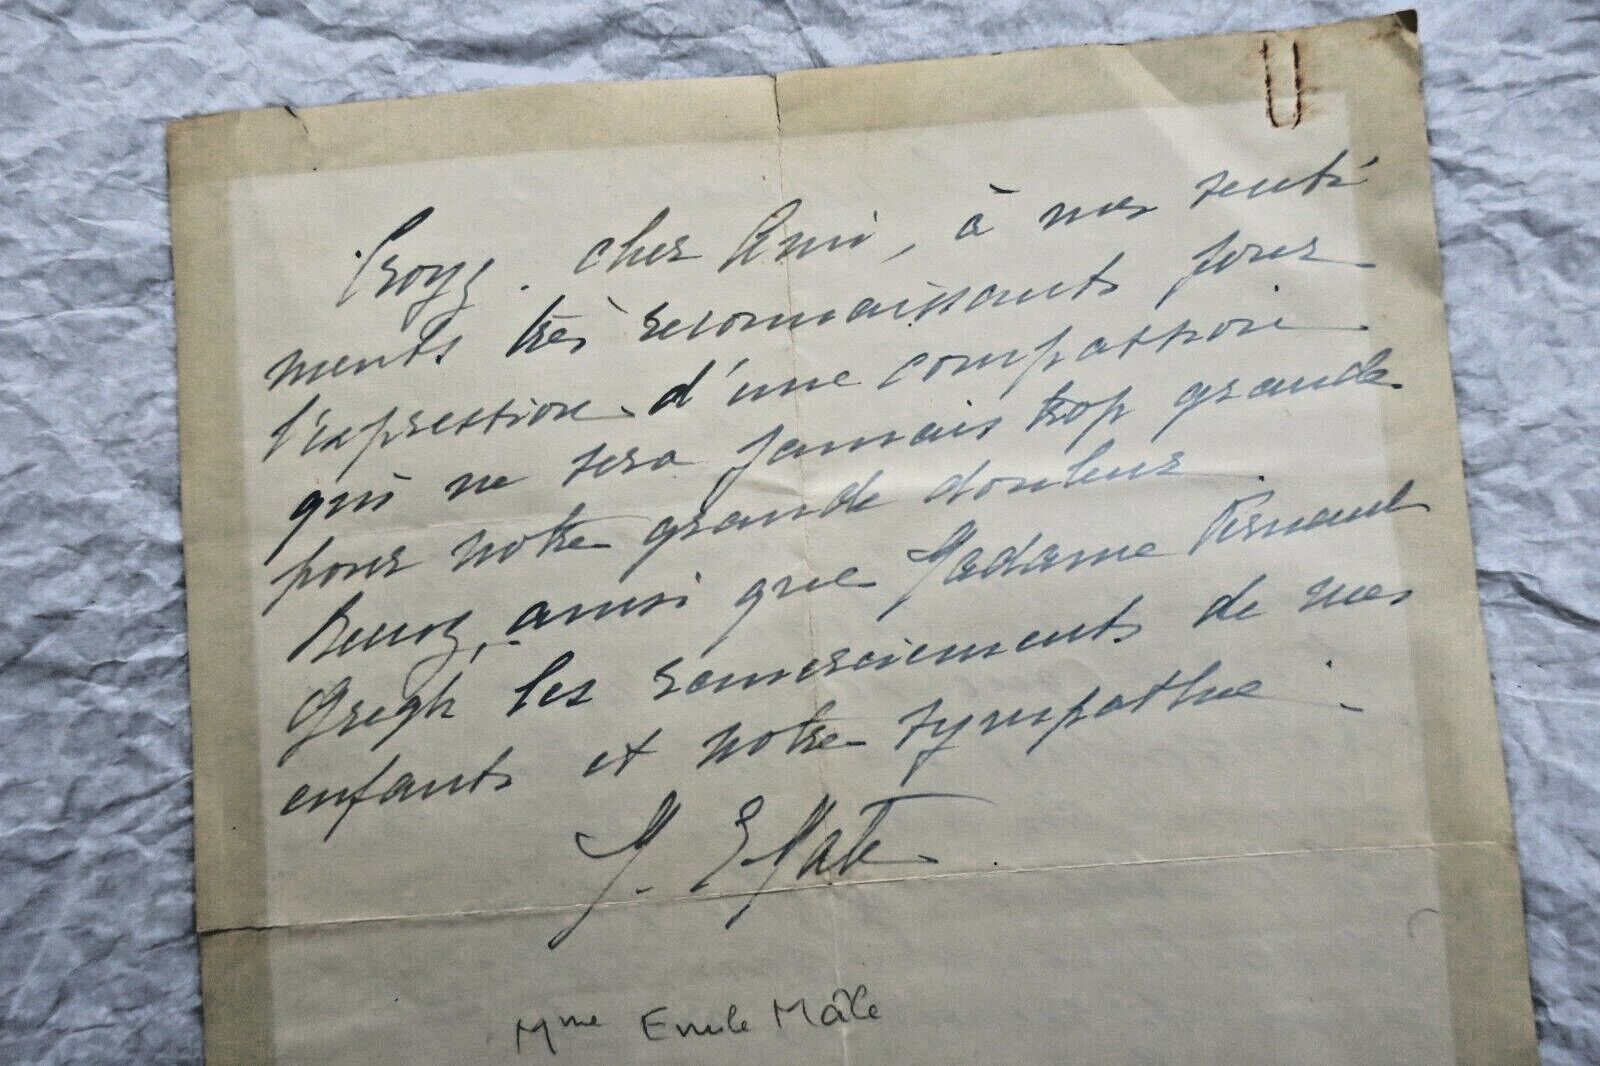 Croyez, cher Ami, à mes senti
ments très reconnaissants pour
l'expression d'une compassion
qui ne sera jamais trop grande
pour notre grande douleur.
Recevez, ainsi que Madame Fernand
Gregh, les remerciements de mes
enfants et notre sympathie.
M. E Mâle
Mme Emile Mâle